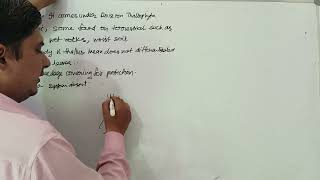 It comes under Division Thallophyta
some found on terrestrial such as
wet rocks, moist soil
is thallus mean does not differentiated
leaves
covering for protection.
system absent